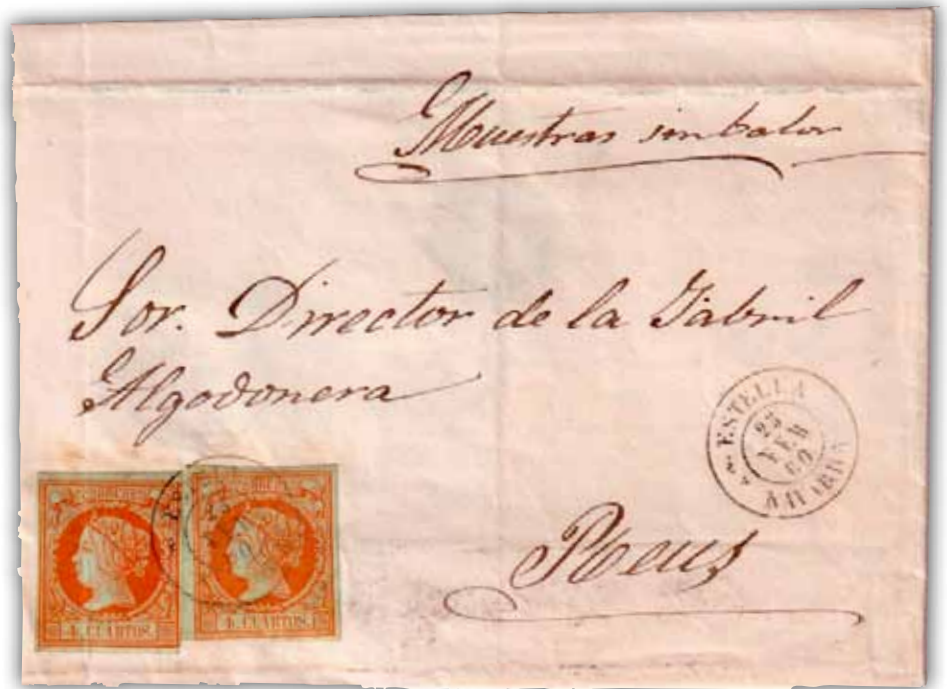 Muestras sin balor
Sor. Director de la Fabril
Algodonera
ESTELLA
25
FEB
60
NAVARRA
Reus
CORREOS
4 CUARTOS.
CORREOS
4 CUARTOS.